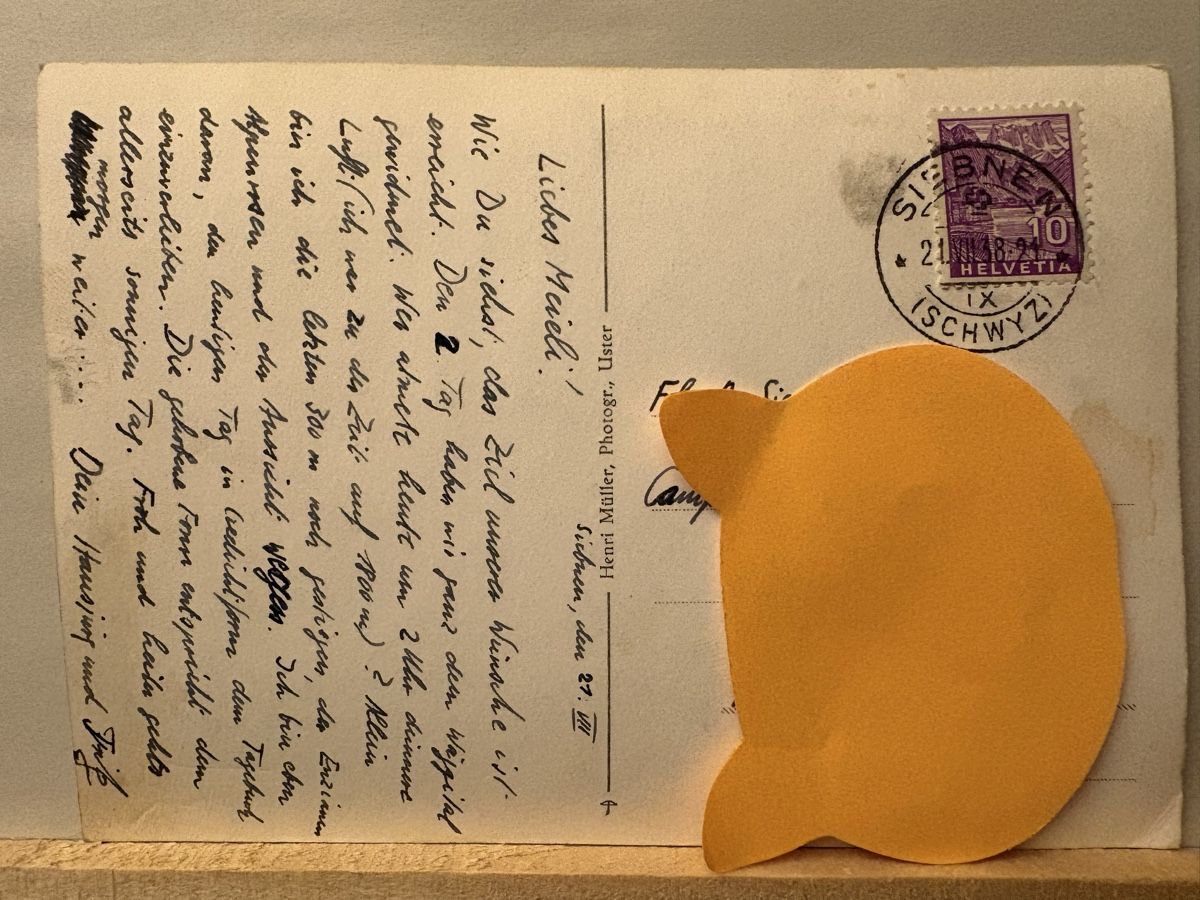 Siebnen, den 21. VII
Liebes Meieli!
Wie Du siehst, das Ziel unserer Wünsche ist
erreicht. Den 2. Tag haben wir ganz dem Wäggital
gewidmet. Wer atmete heute um 2 Uhr dünnere
Luft (ich war zu der Zeit auf 1800 m)? Klein
bin ich die letzten 300 m noch gestiegen, der Enzianen
Alpenrosen und der Aussicht wegen. Ich bin eben
daran, den heutigen Tag in Gedichtform dem Tagebuch
einzuverleiben. Die gehobene Form entspricht dem
allerseits sonnigen Tag. Froh und heiter gehts
morgen
weiter.... Dein Hansjürg und Fritz
Henri Müller, Photogr., Uster
SIEBNEN
21.VII.38-21
IX
(SCHWYZ)
10
HELVETIA